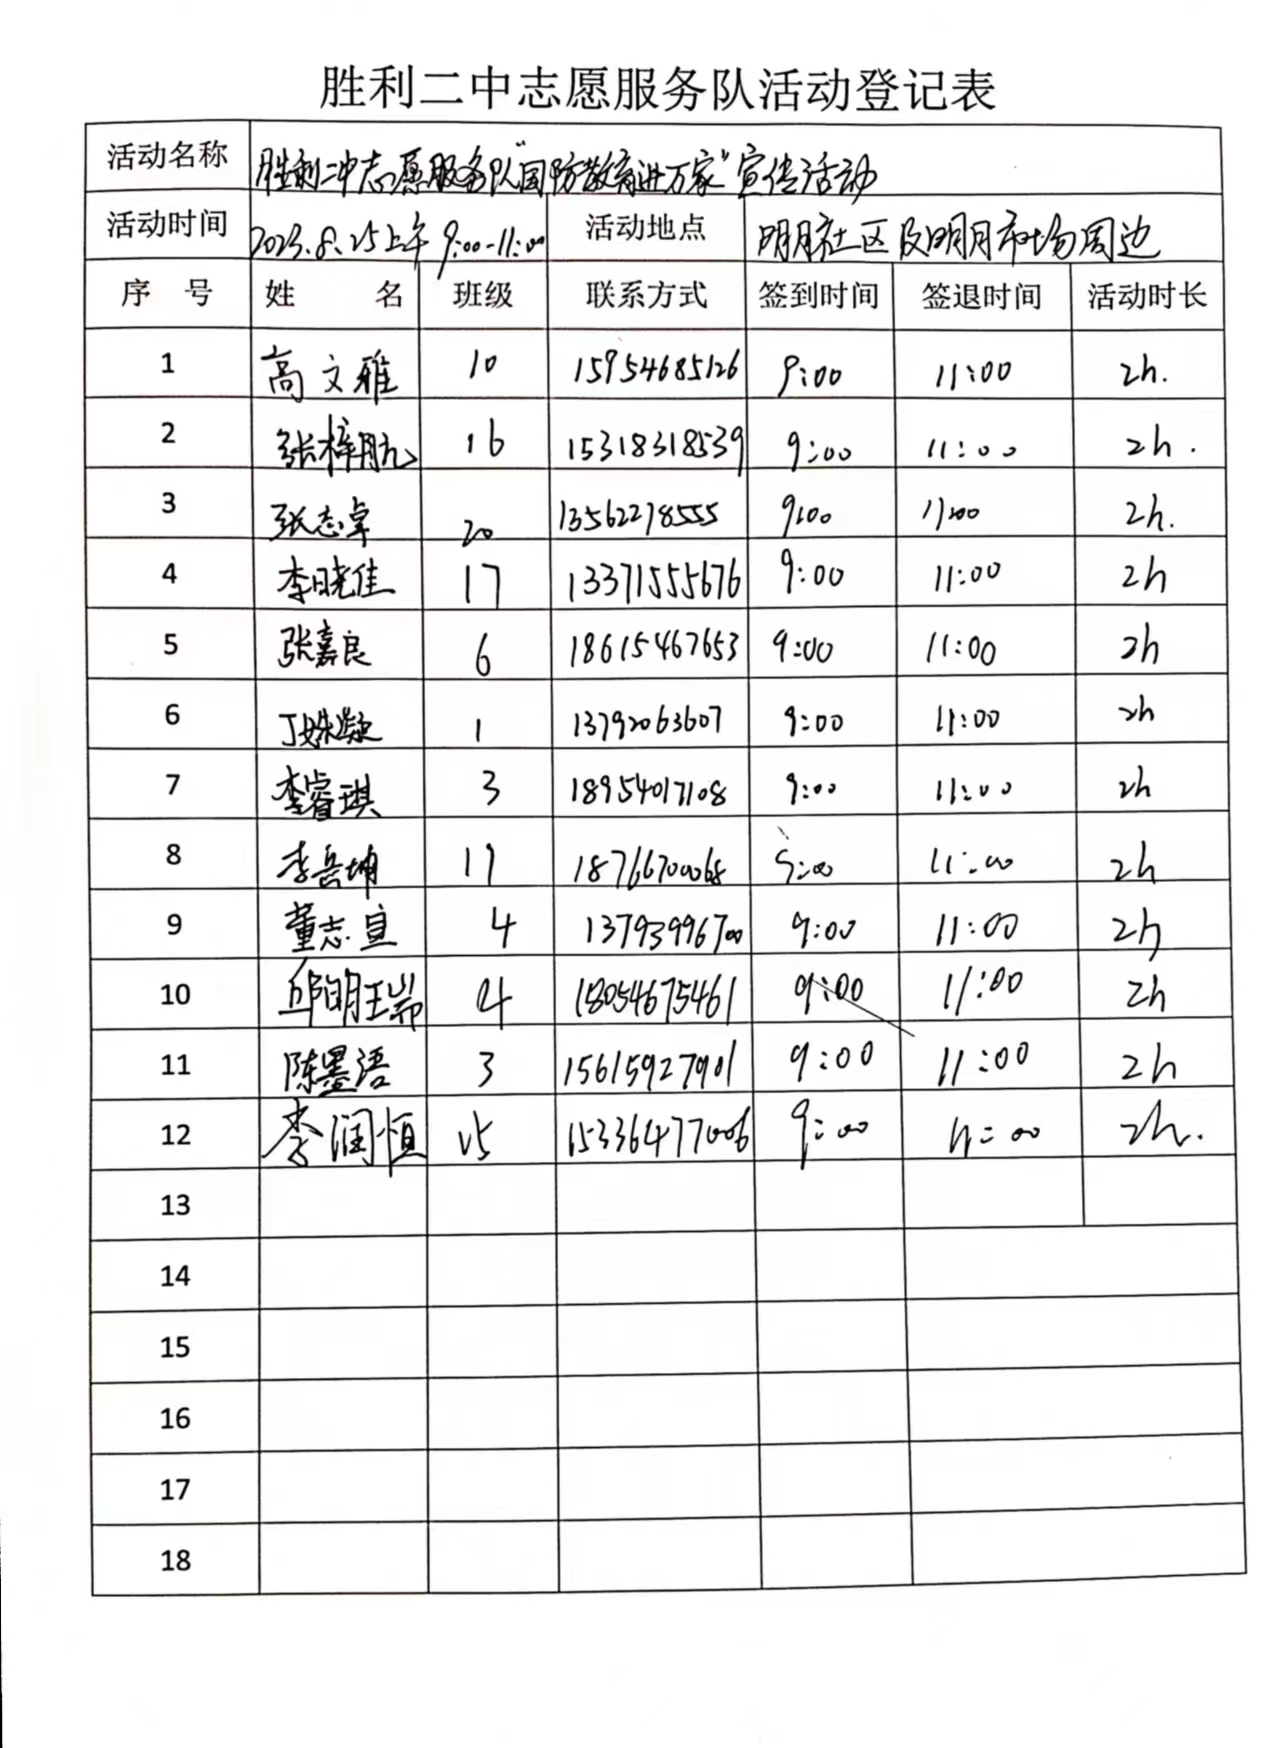 胜利二中志愿服务队活动登记表
活动名称 胜利二中志愿服务队"国防教育进万家"宣传活动
活动时间 2023.8.25上午9:00-11:00 活动地点 明月社区及明月市场周边
序号 姓名 班级 联系方式 签到时间 签退时间 活动时长
1 高文雅 10 15954685126 9:00 11:00 2h.
2 张梓航 16 15318318539 9:00 11:00 2h.
3 张志卓 20 13562278555 9:00 11:00 2h.
4 李晓佳 17 13371555676 9:00 11:00 2h
5 张嘉良 6 18615467653 9:00 11:00 2h
6 丁姝凝 1 13792063607 9:00 11:00 2h
7 李睿琪 3 18954017108 9:00 11:00 2h
8 李岳坤 18766700068 9:00 11:00 2h
9 董志宣 4 13793996700 9:00 11:00 2h
10 邱明瑞 4 18054675461 9:00 11:00 2h
11 陈墨语 3 15615927901 9:00 11:00 2h
12 李润恒 15 15336477006 9:00 11:00 2h.
13
14
15
16
17
18